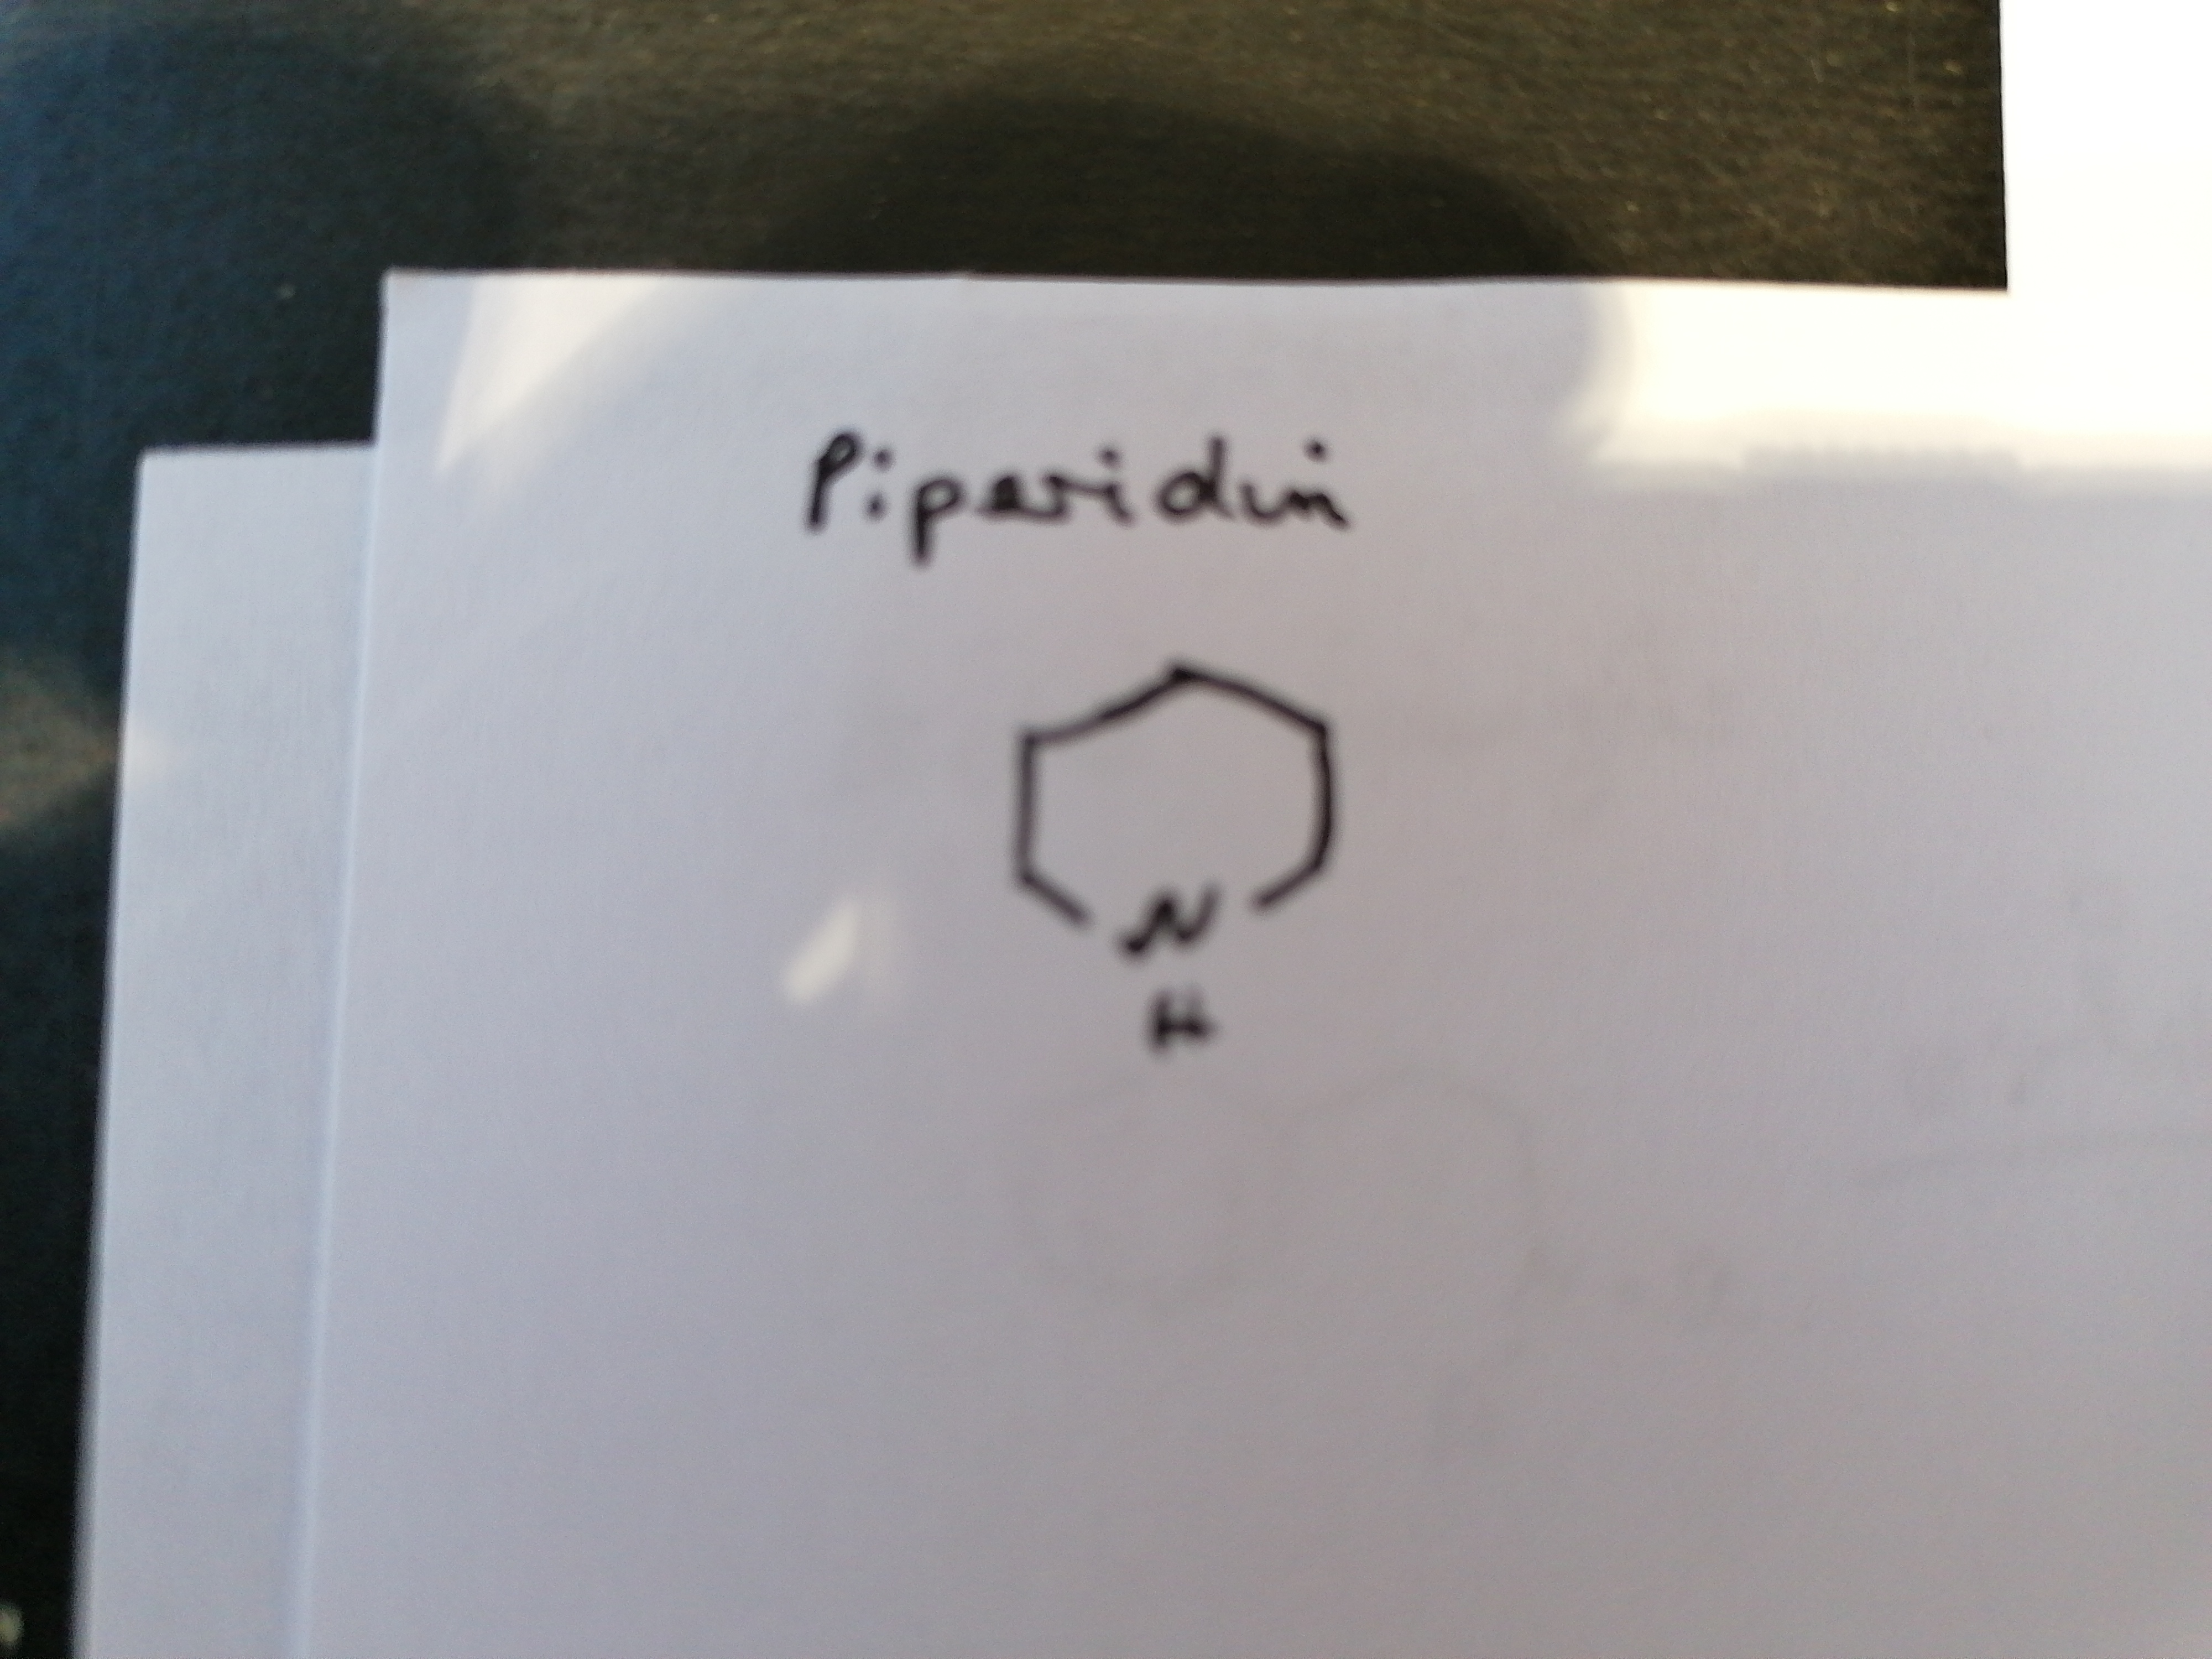 Piperidin
N
H